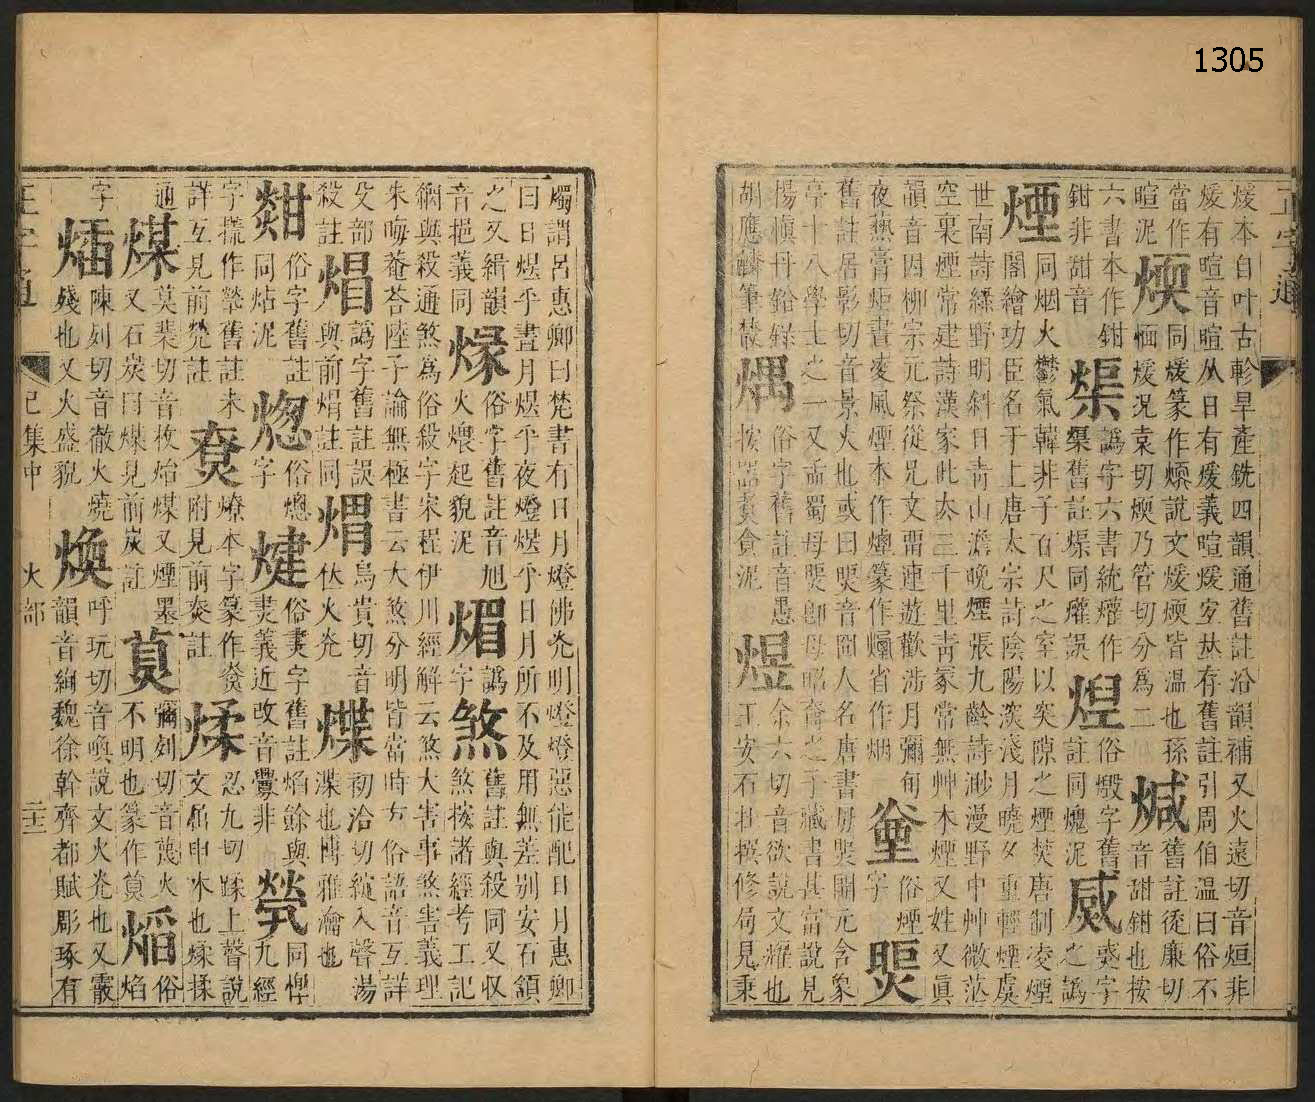 1305
正字通
煖本自叶古軫旱產銑四韻通舊註沿韻補又火遠切音烜非
煖有暄音暄从日有煖義暄煖安𠀤存舊註引周伯温曰俗不
當作暄泥 煗 同煖篆作煗說文煖煗皆温也孫愐煖況袁切煗乃管切分爲二 煘 舊註徒廉切音甜銒也按
六書本作鉗鉗非甜音 㷅 譌字六書統爟作㷅舊註㷅同爟誤 煋 俗燬字舊註同燬泥 烕 烕字之譌
煙 同烟火鬱氣韓非子百尺之室以突隙之煙焚唐制凌煙閣繪功臣名于上唐太宗詩陰陽深淺月曉夕重輕煙虞
世南詩綠野明斜日青山澹晚煙張九齡詩渺漫野中艸微茫
空裏煙常建詩漢家此去三千里青冢常無艸木煙又姓又眞
韻音因柳宗元祭從兄文甯連遊歡涉月彌旬
夜爇膏炬晝凌風煙本作煙篆作省作烟 俗煙字 煚
舊註居影切音景火也或曰煚音冏人名唐書房煚開元含象
亭十八學士之一又孟蜀母煚卽母昭裔之子藏書甚富說見
楊愼丹鉛錄胡應麟筆叢 㷒 俗字舊註音愚按㗊賁食泥 煜 余六切音欲說文耀也王安石拄撰修局見秉
燭謂呂惠卿曰梵書有日月燈佛光明燈燈惡能配日月惠卿
曰日煜乎晝月煜乎夜燈煜乎日月所不及用無差别安石頷
之又緝韻音挹義同 㷆 俗字舊註音旭火煨起貌泥 煝 譌字 煞 舊註與殺同又収煞按諸經考工記
鋼與殺通煞爲俗殺字宋程伊川經解云煞大害事煞害義理
朱晦菴荅陸子論無極書云大煞分明皆當時方俗語音互詳
殳部殺註 焻 譌字舊註誤與前焆註同 煟 烏貴切音 伏火光 煠 初洽切䇲入聲湯渫也博雅瀹也
㷋 俗字舊註同炶泥 㷓 俗熜字 煡 俗㶳字舊註焰餘與㶳義近改音釁非 煢 同惸九經
字撓作㷀舊註未詳互見前煢註 㶾 燎本字篆作尞附見前尞註 煣 忍九切蹂上聲說文屈申木也煣揉
通 煤 莫裴切音枚炲煤又煙墨又石炭曰煤見前炭註 㷊 彌列切音蔑火不明也篆作 熖 俗焰
字 㷃 陳列切音徹火燒殘也又火盛貌 煥 呼玩切音喚說文火光也又霰韻音絢魏徐幹齊都賦彫琢有
正字通 巳集中 火部 二十三